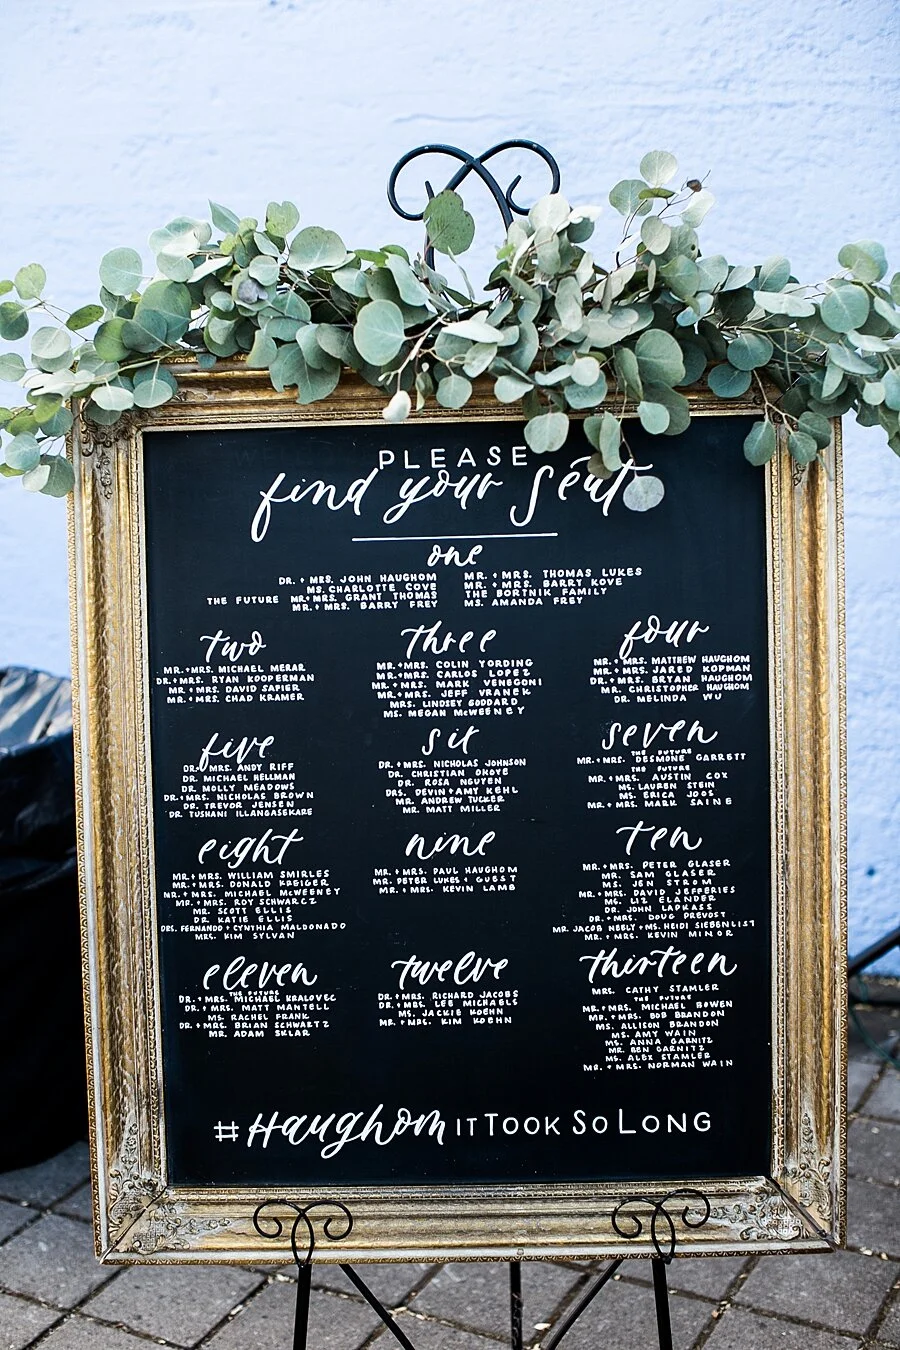 PLEASE
find your seat
one
DR. + MRS. JOHN HAUGHOM
MS. CHARLOTTE COVE
THE FUTURE MR. + MRS. GRANT THOMAS
MR. + MRS. BARRY FREY
MR. + MRS. THOMAS LUKES
MR. + MRS. BARRY KOVE
THE BORTNIK FAMILY
MS. AMANDA FREY
two
MR. + MRS. MICHAEL MERAR
DR. + MRS. RYAN KOOPERMAN
MR. + MRS. DAVID SAPIER
MR. + MRS. CHAD KRAMER
three
MR. + MRS. COLIN YORDING
MR. + MRS. CARLOS LOPEZ
MR. + MRS. MARK VENEGONI
MR. + MRS. JEFF VRANEK
MRS. LINDSEY GODDARD
MS. MEGAN McWEENEY
four
MR. + MRS. MATTHEW HAUGHOM
MR. + MRS. JARED KOPMAN
DR. + MRS. BRYAN HAUGHOM
MR. CHRISTOPHER HAUGHOM
DR. MELINDA WU
five
DR. + MRS. ANDY RIFF
DR. MICHAEL HELLMAN
DR. MOLLY MEADOWS
DR. + MRS. NICHOLAS BROWN
DR. TREVOR JENSEN
DR. TUSHANI ILLANGASEKARE
six
DR. + MRS. NICHOLAS JOHNSON
DR. CHRISTIAN OKOYE
DR. ROSA NGUYEN
DRS. DEVIN + AMY KEHL
MR. ANDREW TUCKER
MR. MATT MILLER
seven
THE FUTURE
MR. + MRS. DESMONE GARRETT
THE FUTURE
MR. + MRS. AUSTIN COX
MS. LAUREN STEIN
MS. ERICA JOOS
MR. + MRS. MARK SAINE
eight
MR. + MRS. WILLIAM SMIRLES
MR. + MRS. DONALD KREIGER
MR. + MRS. MICHAEL McWEENEY
MR. + MRS. ROY SCHWARCZ
MR. SCOTT ELLIS
DR. KATIE ELLIS
DRS. FERNANDO + CYNTHIA MALDONADO
MRS. KIM SYLVAN
nine
MR. + MRS. PAUL HAUGHOM
MR. PETER LUKES + GUEST
MR. + MRS. KEVIN LAMB
ten
MR. + MRS. PETER GLASER
MR. SAM GLASER
MS. JEN STROM
MR. + MRS. DAVID JEFFERIES
MS. LIZ ELANDER
DR. JOHN LAPKASS
DR. + MRS. DOUG PREVOST
MR. JACOB NEELY + MS. HEIDI SIEBENLIST
MR. + MRS. KEVIN MINOR
eleven
THE FUTURE
DR. + MRS. MICHAEL KRALOVEC
DR. + MRS. MATT MANTELL
MS. RACHEL FRANK
DR. + MRS. BRIAN SCHWARTZ
MR. ADAM SKLAR
twelve
DR. + MRS. RICHARD JACOBS
DR. + MRS. LEE MICHAELS
MS. JACKIE KOEHN
MR. + MRS. KIM KOEHN
thirteen
MRS. CATHY STAMLER
THE FUTURE
MR. + MRS. MICHAEL BOWEN
MR. + MRS. BOB BRANDON
MS. ALLISON BRANDON
MS. AMY WAIN
MS. ANNA GARNITZ
MR. BEN GARNITZ
MS. ALEX STAMLER
MR. + MRS. NORMAN WAIN
#HaughomITTOOKSOLONG